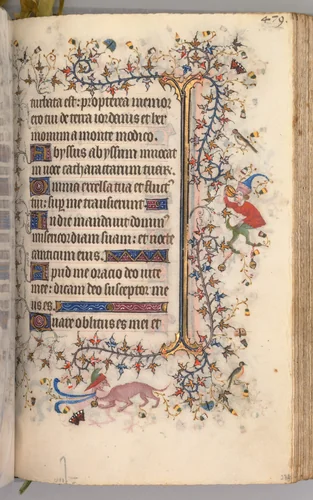 479.
turbata est: propterea memor
ero tui de terra iordanis et her
monium a monte modico.
Abyssus abyssum inuocat
in uoce cathara­ctarum tuar.
Omnia excelsa tua et fluct
tui: sup me transierunt
In die mandauit domin
misericordiam suam: et nocte
canticum eius.
Apud me oracio deo uite
mee: dicam deo susceptor me
us es.
Quare oblitus es mei et